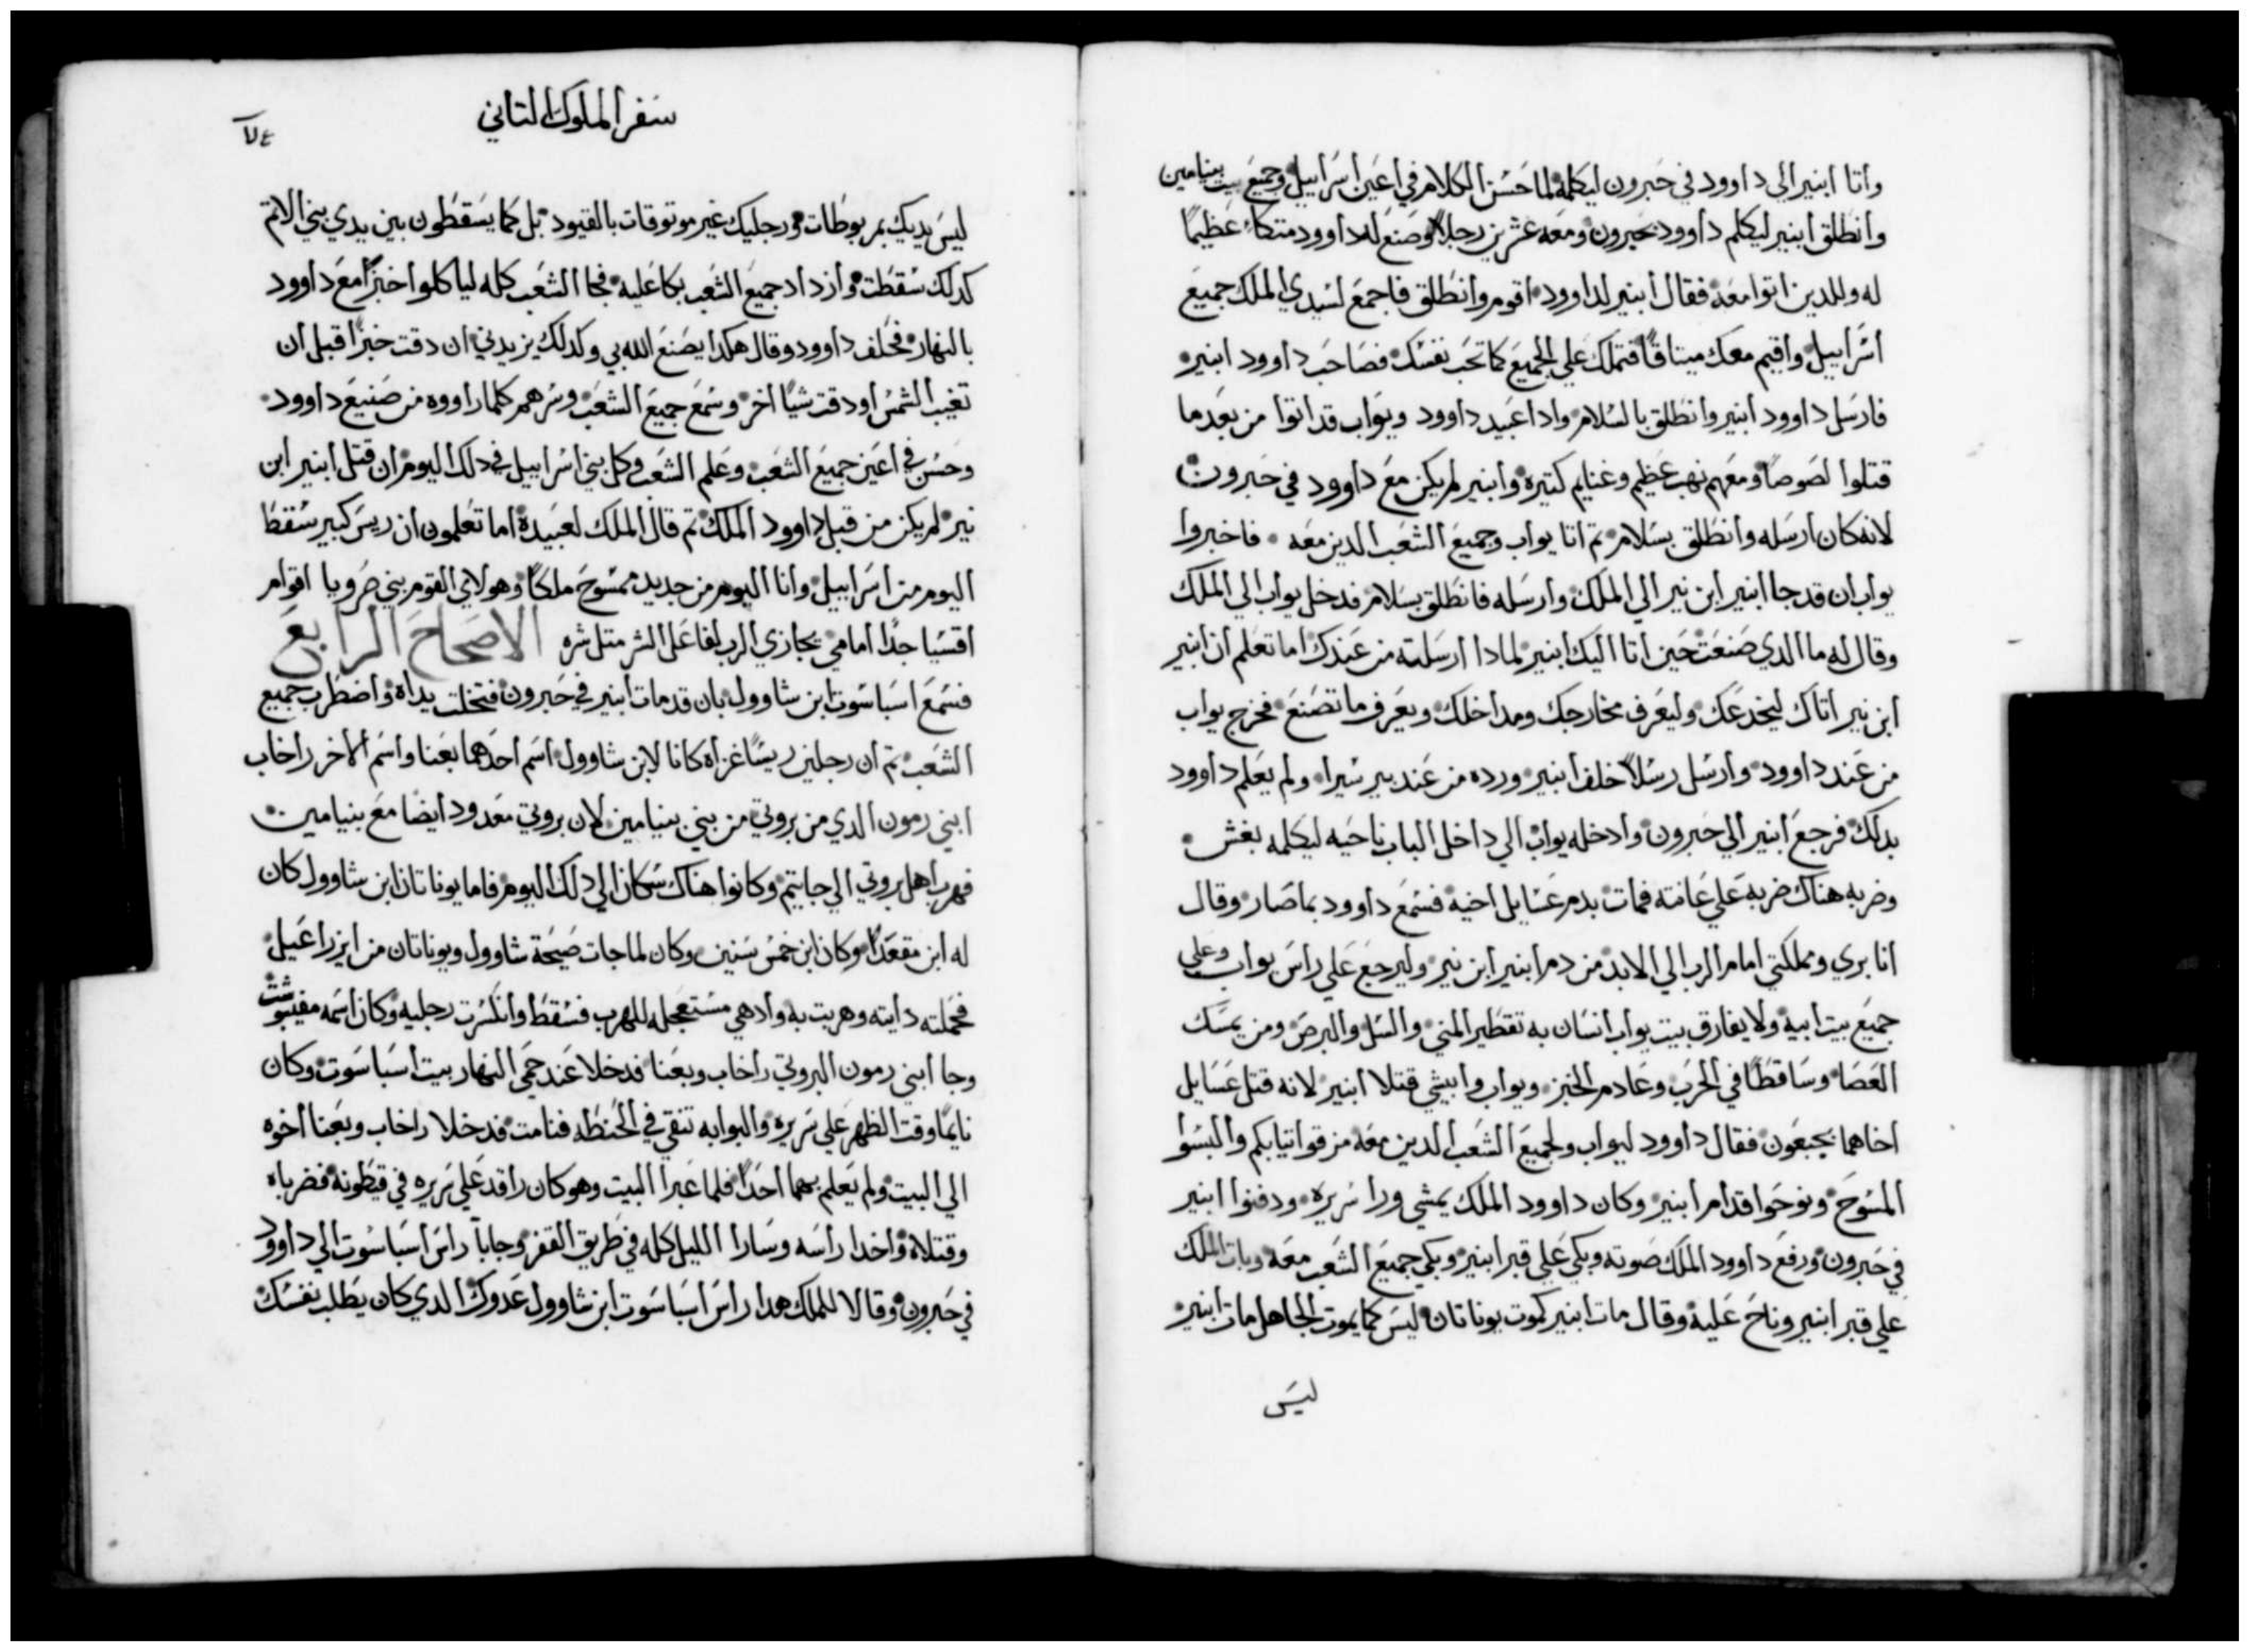 واتا ابنير الي داوود في حبرون ليكلمه لما حسن الكلام في اعين اسراييل وجميع بيت بنيامين
وانطلق ابنير ليكلم داوود بحبرون ومعه عشرين رجلا وصنع له داوود متكاء عظيما
له وللدين اتوا معه فقال ابنير لداوود اقوم وانطلق فاجمع لسيدي الملك جميع
اسراييل واقيم معك ميتاقا فتملك علي الجميع كما تحب نفسك فصاحب داوود ابنير
فارسل داوود ابنير وانطلق بالسلام وادا عبيد داوود ويواب قد اتوا من بعد ما
قتلوا لصوصا ومعهم نهب عظيم وغنايم كتيره وابنير لم يكن مع داوود في حبرون
لانه كان ارسله وانطلق بسلام تم اتا يواب وجميع الشعب الدين معه فاخبروا
يواب ان قد جا ابنير ابن نير الي الملك وارسله فانطلق بسلام فدخل يواب الي الملك
وقال له ما الدي صنعت حين اتا اليك ابنير لمادا ارسلته من عندك اما تعلم ان ابنير
ابن نير اتاك ليخدعك وليعرف مخارجك ومداخلك ويعرف ما تصنع فخرج يواب
من عند داوود وارسل رسلا خلف ابنير ورده من عند بير سيرا ولم يعلم داوود
بدلك فرجع ابنير الي حبرون وادخله يواب الي داخل الباب ناحيه ليكلمه بغش
وضربه هناك ضربه علي عانته فمات بدم عسايل اخيه فسمع داوود بما صار وقال
انا بري ومملكتي امام الرب الي الابد من دم ابنير ابن نير وليرجع علي راس يواب وعلي
جميع بيت ابيه ولا يفارق بيت يواب انسان به تقطير المني والسل والبرص ومن يمسك
العصا وساقطا في الحرب وعادم الخبز ويواب وابيشي قتلا ابنير لانه قتل عسايل
اخاهما بجبعون فقال داوود ليواب ولجميع الشعب الدين معه مزقوا تيابكم والبسوا
المسوح ونوحوا قدام ابنير وكان داوود الملك يمشي ورا سريره ودفنوا ابنير
في حبرون ورفع داوود الملك صوته وبكي علي قبر ابنير وبكي جميع الشعب معه وبات الملك
علي قبر ابنير وناح عليه وقال مات ابنير كموت يوناتان ليس كما يموت الجاهل مات ابنير
ليس
سفر الملوك التاني
ليس يديك بمربوطات ورجليك غير موتوقات بالقيود بل كما يسقطون بين يدي بني الاتم
كدلك سقطت وازداد جميع الشعب بكا عليه فجا الشعب كله لياكلوا خبزا مع داوود
بالنهار فحلف داوود وقال هكدا يصنع الله بي وكدلك يزيدني ان دقت خبزا قبل ان
تغيب الشمس او دقت شيا اخر وسمع جميع الشعب وسرهم كلما راووه من صنيع داوود
وحسن في اعين جميع الشعب وعلم الشعب وكل بني اسراييل في دلك اليوم ان قتل ابنير ابن
نير لم يكن من قبل داوود الملك تم قال الملك لعبيده اما تعلمون ان ريس كبير سقط
اليوم من اسراييل وانا اليوم من جديد ممسوح ملكا وهولاي القوم بني صرويا اقوام
اقسيا جدا امامي يجازي الرب لفاعل الشر متل شره الاصحاح الرابع
فسمع اسباسوت ابن شاوول بان قد مات ابنير في حبرون فتخلت يداه واضطرب جميع
الشعب تم ان رجلين ريسا غزاه كانا لابن شاوول اسم احدهما بعنا واسم الاخر راخاب
ابني رمون الدي من بروتي من بني بنيامين لان بروتي معدود ايضا مع بنيامين
فهرب اهل بروتي الي جاتيم وكانوا هناك سكان الي دلك اليوم فاما يوناتان ابن شاوول كان
له ابن مقعدا وكان ابن خمس سنين وكان لما جات صيحة شاوول ويوناتان من ايزراعيل
فحملته دايته وهربت به وادهي مستعجله للهرب فسقط وانكسرت رجليه وكان اسمه مفيبوشت
وجا ابني رمون البروتي راخاب وبعنا فدخلا عند حمي النهار بيت اسباسوت وكان
نايما وقت الظهر علي سريره والبوابه تنقي في الحنطه فنامت فدخلا راخاب وبعنا اخوه
الي البيت ولم يعلم بهما احدا فلما عبرا البيت وهو كان راقد علي سريره في قيطونه فضرباه
وقتلاه واخدا راسه وسارا الليل كله في طريق القفر وجابا راس اسباسوت الي داوود
في حبرون وقالا للملك هدا راس اسباسوت ابن شاوول عدوك الدي كان يطلب نفسك